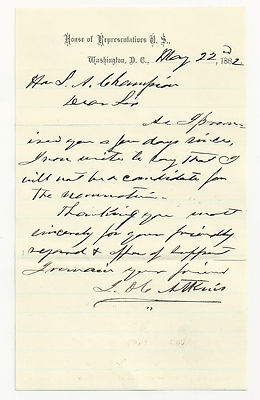 House of Representatives U. S.,
Washington, D. C., May 22d, 1882
Hon S. A. Champion
Dear Sir
As I prom-
ised you a few days since,
I now write to say that I
will not be a candidate for
the nomination.
Thanking you most
sincerely for your friendly
regard & offer of support
I remain your friend
J. D. C. Atkins